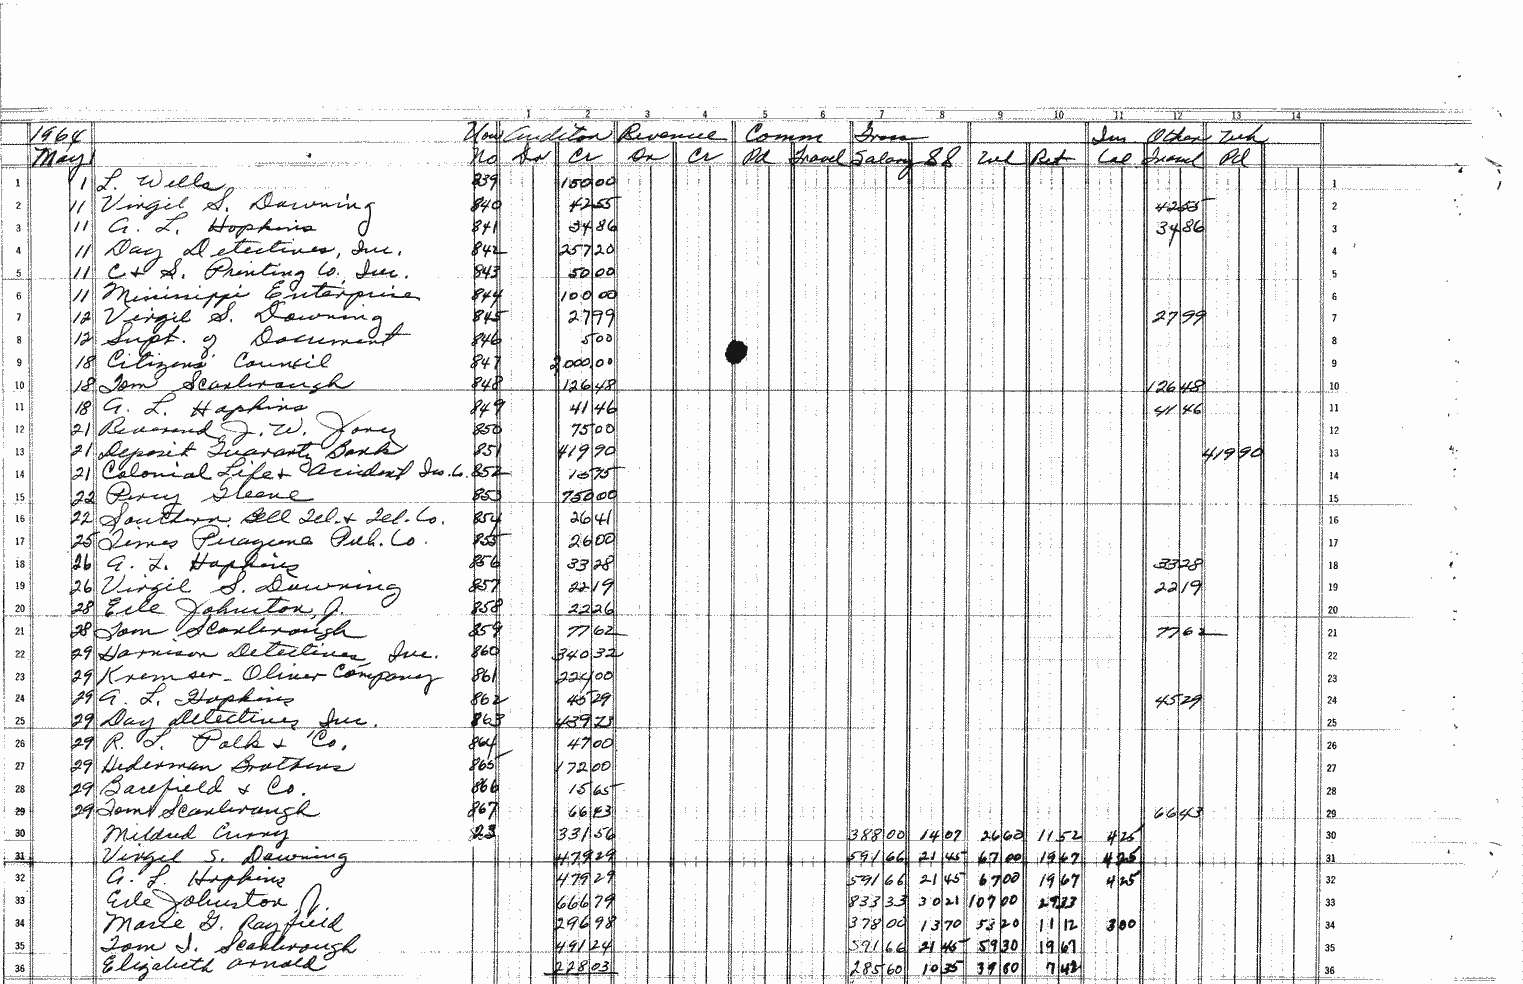 1 2 3 4 5 6 7 8 9 10 11 12 13 14
1964 Vou Auditor Revenue Comm Gross Ins Other Wh
May No Dr Cr Dr Cr Pd Travel Salary SS Wh Ret Col Travel Pd
1 1 L. Wells 839 150 00 1
2 11 Virgil S. Downing 840 42 55 42 55 2
3 11 A. L. Hopkins 841 34 86 34 86 3
4 11 Day Detectives, Inc. 842 257 20 4
5 11 C & S. Printing Co. Inc. 843 50 00 5
6 11 Mississippi Enterprise 844 100 00 6
7 12 Virgil S. Downing 845 27 99 27 99 7
8 12 Supt. of Document 846 5 00 8
9 18 Citizens' Council 847 2,000.00 9
10 18 Tom Scarbrough 848 126 48 126 48 10
11 18 A. L. Hopkins 849 41 46 41 46 11
12 21 Reverend J. W. Jones 850 75 00 12
13 21 Deposit Guaranty Bank 851 419 90 419 90 13
14 21 Colonial Life & Accident Ins. Co. 852 15 75 14
15 22 Percy Greene 853 750 00 15
16 22 Southern Bell Tel. & Tel. Co. 854 26 41 16
17 25 Times Picayune Pub. Co. 855 26 00 17
18 26 A. L. Hopkins 856 33 28 33 28 18
19 26 Virgil S. Downing 857 22 19 22 19 19
20 28 Erle Johnston, Jr. 858 22 26 20
21 28 Tom Scarbrough 859 77 62 77 62 21
22 29 Harrison Detectives, Inc. 860 340 32 22
23 29 Kremser-Oliver Company 861 224 00 23
24 29 A. L. Hopkins 862 45 29 45 29 24
25 29 Day Detectives, Inc. 863 439 73 25
26 29 R. L. Polk & Co. 864 47 00 26
27 29 Hederman Brothers 865 172 00 27
28 29 Barefield & Co. 866 15 65 28
29 29 Tom Scarbrough 867 66 43 66 43 29
30 Mildred Curry 23 331 56 388 00 14 07 26 60 11 52 4 25 30
31 Virgil S. Downing 479 29 591 66 21 45 67 00 19 67 4 25 31
32 A. L. Hopkins 479 29 591 66 21 45 67 00 19 67 4 25 32
33 Erle Johnston Jr. 666 79 833 33 30 21 107 00 29 33 33
34 Marie G. Rayfield 296 98 378 00 13 70 53 20 11 12 3 00 34
35 Tom S. Scarbrough 491 24 591 66 21 45 59 30 19 67 35
36 Elizabeth Arnold 228 03 285 60 10 35 39 80 7 42 36